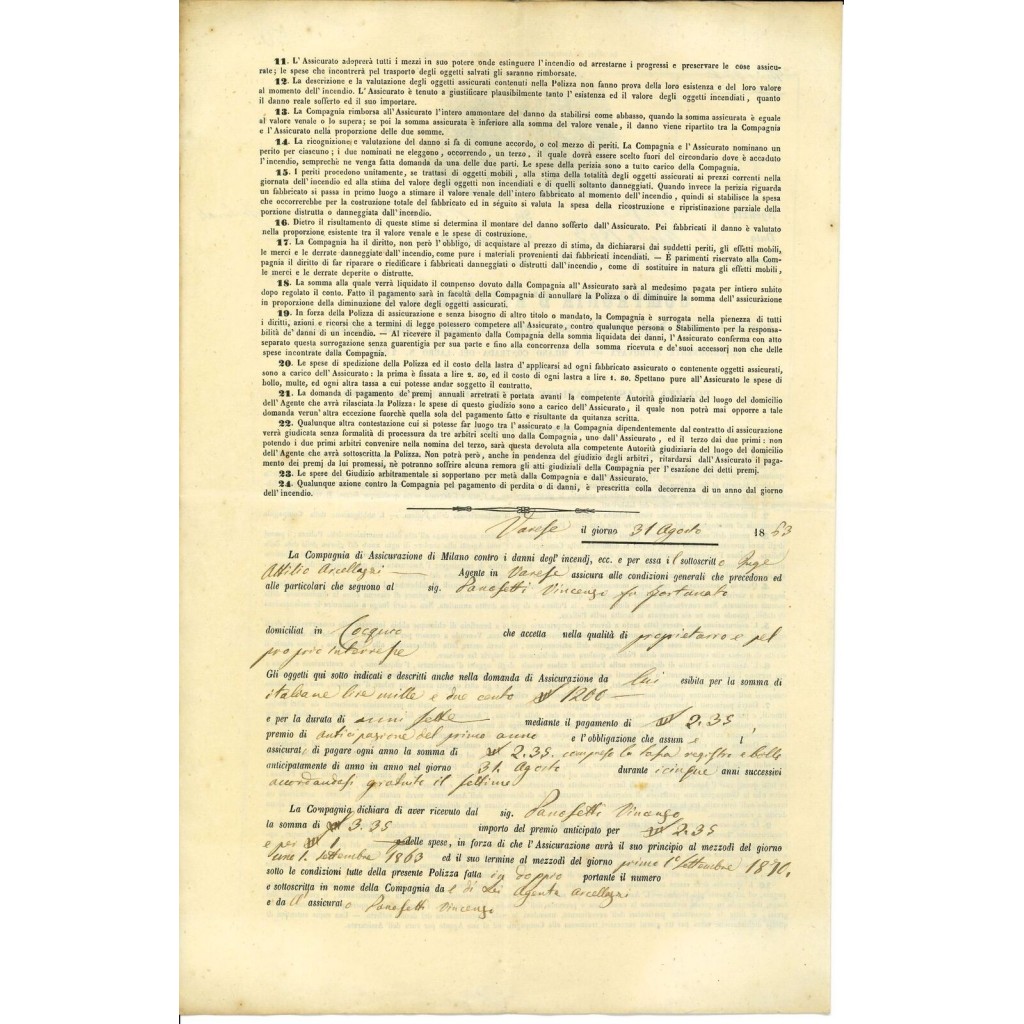 11. L'Assicurato adoprerà tutti i mezzi in suo potere onde estinguere l'incendio od arrestarne i progressi e preservare le cose assicu-
rate; le spese che incontrerà pel trasporto degli oggetti salvati gli saranno rimborsate.
12. La descrizione e la valutazione degli oggetti assicurati contenuti nella Polizza non fanno prova della loro esistenza e del loro valore
al momento dell'incendio. L'Assicurato è tenuto a giustificare plausibilmente tanto l'esistenza ed il valore degli oggetti incendiati, quanto
il danno reale sofferto ed il suo importare.
13. La Compagnia rimborsa all'Assicurato l'intero ammontare del danno da stabilirsi come abbasso, quando la somma assicurata è eguale
al valore venale o lo supera; se poi la somma assicurata è inferiore alla somma del valore venale, il danno viene ripartito tra la Compagnia
e l'Assicurato nella proporzione delle due somme.
14. La ricognizione e valutazione del danno si fa di comune accordo, o col mezzo di periti. La Compagnia e l'Assicurato nominano un
perito per ciascuno; i due nominati ne eleggono, occorrendo, un terzo, il quale dovrà essere scelto fuori del circondario dove è accaduto
l'incendio, semprechè ne venga fatta domanda da una delle due parti. Le spese della perizia sono a tutto carico della Compagnia.
15. I periti procedono unitamente, se trattasi di oggetti mobili, alla stima della totalità degli oggetti assicurati ai prezzi correnti nella
giornata dell'incendio ed alla stima del valore degli oggetti non incendiati e di quelli soltanto danneggiati. Quando invece la perizia riguarda
un fabbricato si passa in primo luogo a stimare il valore venale dell'intero fabbricato al momento dell'incendio, quindi si stabilisce la spesa
che occorrerebbe per la costruzione totale del fabbricato ed in séguito si valuta la spesa della ricostruzione e ripristinazione parziale della
porzione distrutta o danneggiata dall'incendio.
16. Dietro il risultamento di queste stime si determina il montare del danno sofferto dall'Assicurato. Pei fabbricati il danno è valutato
nella proporzione esistente tra il valore venale e le spese di costruzione.
17. La Compagnia ha il diritto, non però l'obbligo, di acquistare al prezzo di stima, da dichiararsi dai suddetti periti, gli effetti mobili,
le merci e le derrate danneggiate dall'incendio, come pure i materiali provenienti dai fabbricati incendiati. — È parimenti riservato alla Com-
pagnia il diritto di far riparare o riedificare i fabbricati danneggiati o distrutti dall'incendio, come di sostituire in natura gli effetti mobili,
le merci e le derrate deperite o distrutte.
18. La somma alla quale verrà liquidato il compenso dovuto dalla Compagnia all'Assicurato sarà al medesimo pagata per intiero subito
dopo regolato il conto. Fatto il pagamento sarà in facoltà della Compagnia di annullare la Polizza o di diminuire la somma dell'assicurazione
in proporzione della diminuzione del valore degli oggetti assicurati.
19. In forza della Polizza di assicurazione e senza bisogno di altro titolo o mandato, la Compagnia è surrogata nella pienezza di tutti
i diritti, azioni e ricorsi che a termini di legge potessero competere all'Assicurato, contro qualunque persona o Stabilimento per la responsa-
bilità de' danni di un incendio. — Al ricevere il pagamento dalla Compagnia della somma liquidata dei danni, l'Assicurato conferma con atto
separato questa surrogazione senza guarentigia per sua parte e fino alla concorrenza della somma ricevuta e de'suoi accessorj non che delle
spese incontrate dalla Compagnia.
20. Le spese di spedizione della Polizza ed il costo della lastra d'applicarsi ad ogni fabbricato assicurato o contenente oggetti assicurati,
sono a carico dell'Assicurato: la prima è fissata a lire 2. 50, ed il costo di ogni lastra a lire 1. 50. Spettano pure all'Assicurato le spese di
bollo, multe, ed ogni altra tassa a cui potesse andar soggetto il contratto.
21. La domanda di pagamento de'premj annuali arretrati è portata avanti la competente Autorità giudiziaria del luogo del domicilio
dell'Agente che avrà rilasciata la Polizza: le spese di questo giudizio sono a carico dell'Assicurato, il quale non potrà mai opporre a tale
domanda verun'altra eccezione fuorchè quella sola del pagamento fatto e risultante da quitanza scritta.
22. Qualunque altra contestazione cui si potesse far luogo tra l'Assicurato e la Compagnia dipendentemente dal contratto di assicurazione
verrà giudicata senza formalità di processura da tre arbitri scelti uno dalla Compagnia, uno dall'Assicurato, ed il terzo dai due primi: non
potendo i due primi arbitri convenire nella nomina del terzo, sarà questa devoluta alla competente Autorità giudiziaria del luogo del domicilio
dell'Agente che avrà sottoscritta la Polizza. Non potrà però, anche in pendenza del giudizio degli arbitri, ritardarsi dall'Assicurato il paga-
mento dei premj da lui promessi, nè potranno soffrire alcuna remora gli atti giudiziali della Compagnia per l'esazione dei detti premj.
23. Le spese del Giudizio arbitramentale si sopportano per metà dalla Compagnia e dall'Assicurato.
24. Qualunque azione contro la Compagnia pel pagamento di perdita o di danni, è prescritta colla decorrenza di un anno dal giorno
dell'incendio.
Varese il giorno 31 Agosto 18
La Compagnia di Assicurazione di Milano contro i danni degl'incendj, ecc. e per essa il sottoscritto
Attilio Arcellazzi Agente in Varese assicura alle condizioni generali che precedono ed
alle particolari che seguono al sig. Panosetti Vincenzo fu Fortunato
domiciliat in Cocquio che accetta nella qualità di proprietario e pel
proprio interresse
Gli oggetti qui sotto indicati e descritti anche nella domanda di Assicurazione da lui esibita per la somma di
italiane lire mille e due cento 1200
e per la durata di anni sette mediante il pagamento di 2.35
premio di anticipazione del primo anno e l'obbligazione che assume l'
assicurat. di pagare ogni anno la somma di 2.35. compreso la tassa registro e bollo
anticipatamente di anno in anno nel giorno 31. Agosto durante i cinque anni successivi
accordandosi gratuito il settimo
La Compagnia dichiara di aver ricevuto dal sig. Panosetti Vincenzo
la somma di 3.35 importo del premio anticipato per 2.35
e per 1 delle spese, in forza di che l'Assicurazione avrà il suo principio al mezzodì del giorno
1. Settembre 1863 ed il suo termine al mezzodì del giorno primo 1° Settembre 1870.
sotto le condizioni tutte della presente Polizza fatta in doppio portante il numero
e sottoscritta in nome della Compagnia da Agente Arcellazzi
e da assicurato Panosetti Vincenzo